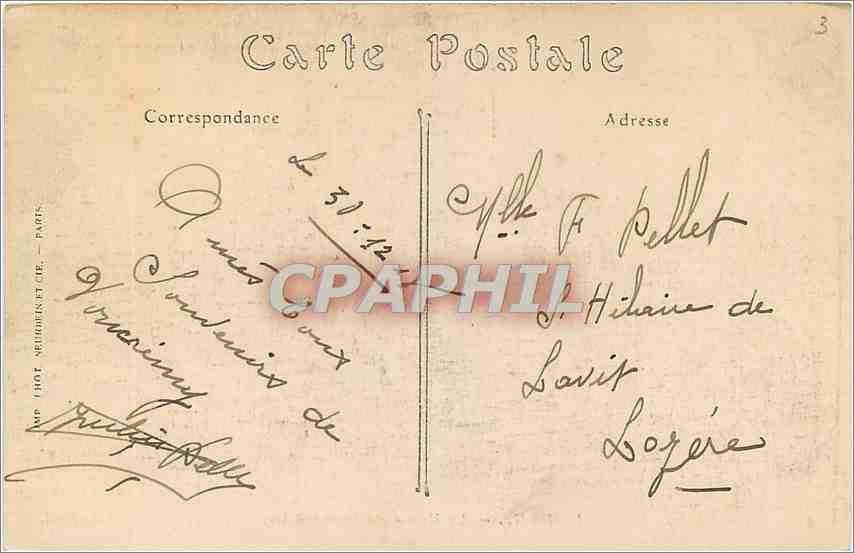 3
Carte Postale
Correspondance
Adresse
Le 30-12
doux
Souvenirs de
Mlle F Pellet
St Hilaire de
Lavit
Lozère
IMP. PHOT. NEURDEIN ET CIE. — PARIS
CPAPHIL